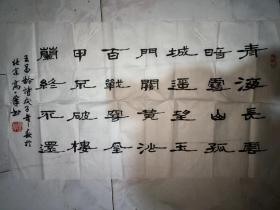 青海長雲
暗雪山孤
城遥望玉
門關黄沙
百戰穿金
甲不破樓
蘭終不還
王昌齡詩戊子年春於
北京高